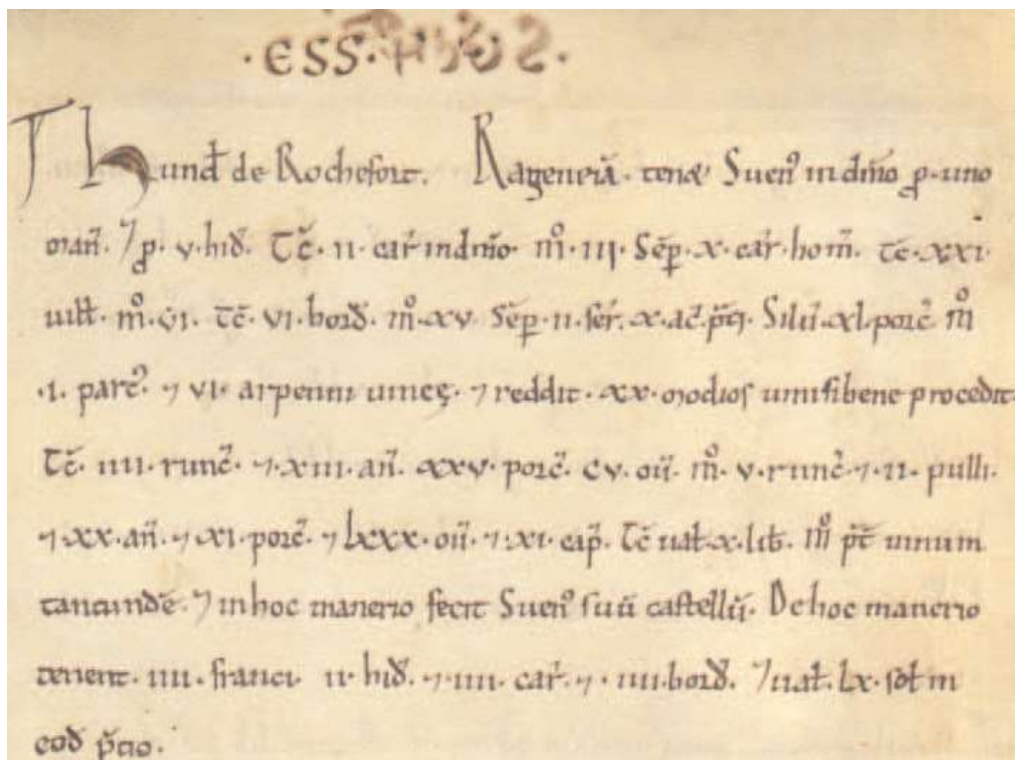 ·ESS·
Hund᷑ de Rochefort. Rageneiā· tenet Suen᷒ in dn̄io ꝓ·uno
man̄. ⁊ ꝓ· v·hid᷑. Tc̄· ii· car̄ in dn̄io· m̊· iii· Sēp̱· x· car̄· hom̄. tc̄· xxi·
uill᷑. m̊· vi· tc̄· vi· bord᷑. m̊· xv· Sēp̱· ii· ser̄. x· ac̄. p̄ti· Silu̅· xl· porc̄ m̊
·i· parc᷒ ⁊ vi· arpenni uineę· ⁊ reddit· xx· modios uini si bene procedit·
Tc̄· iiii· runc̄· ⁊· xiii· an̄. xxv· porc̄. cv· ou̅. m̊· v· runc̄· ⁊· ii· pulli·
⁊ xx· an̄· ⁊ xi· porc̄· ⁊ lxxx· ou̅· ⁊· xi· cap̄. Tc̄ ual᷑· x· lib᷑. m̊ p̄t̄ uinum
tantundē· ⁊ in hoc manerio fecit Suen᷒ suū castellū. De hoc manerio
tenent· iiii· franci· ii· hid᷑· ⁊· iiii· car̄· ⁊· iiii· bord᷑. ⁊ ual᷑· lx· sol᷑ in
eod᷑ p̄tio·